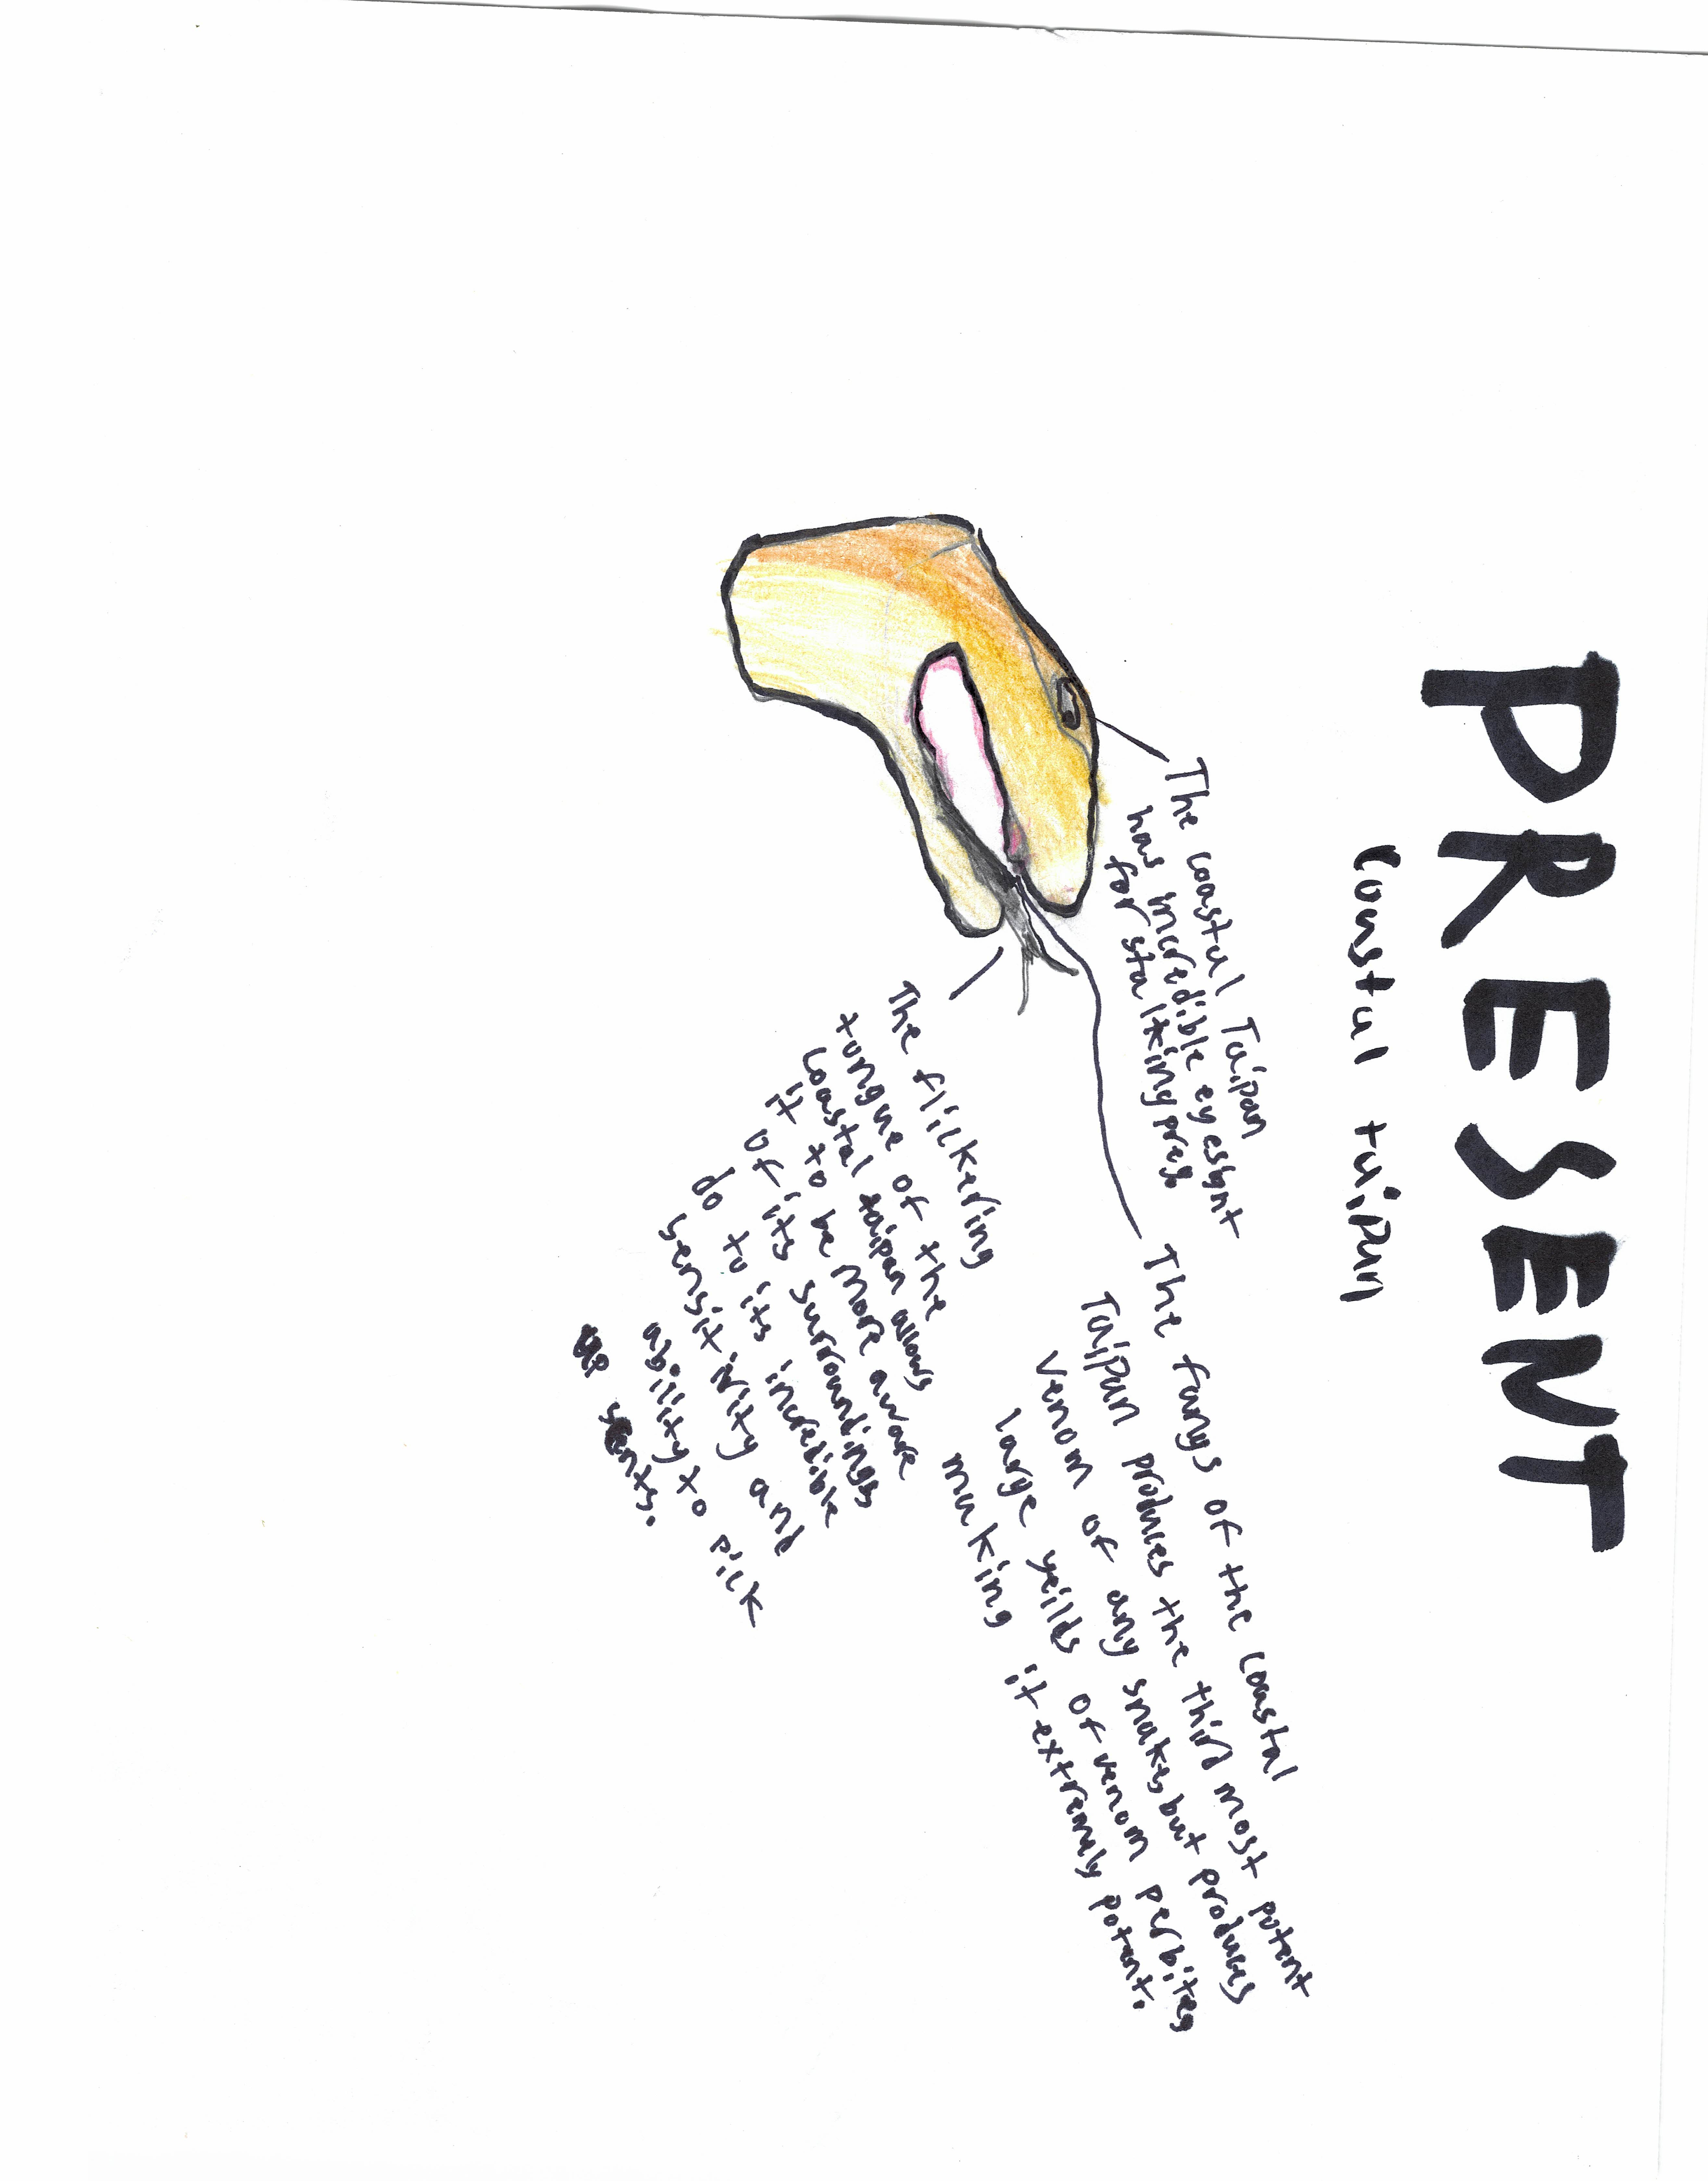 PRESENT
Coastal taipan
The coastal Taipan
has incredible eyesight
for stalking prey.
The fangs of the coastal
Taipan produces the third most potent
venom of any snakes, but produces
large yeilds of venom perbites
making it extremly potent.
The flickering
tongue of the
coastal taipan allows
it to be More aware
of its surroundings
do to its incredible
sensitivity and
ability to pick
up scents.